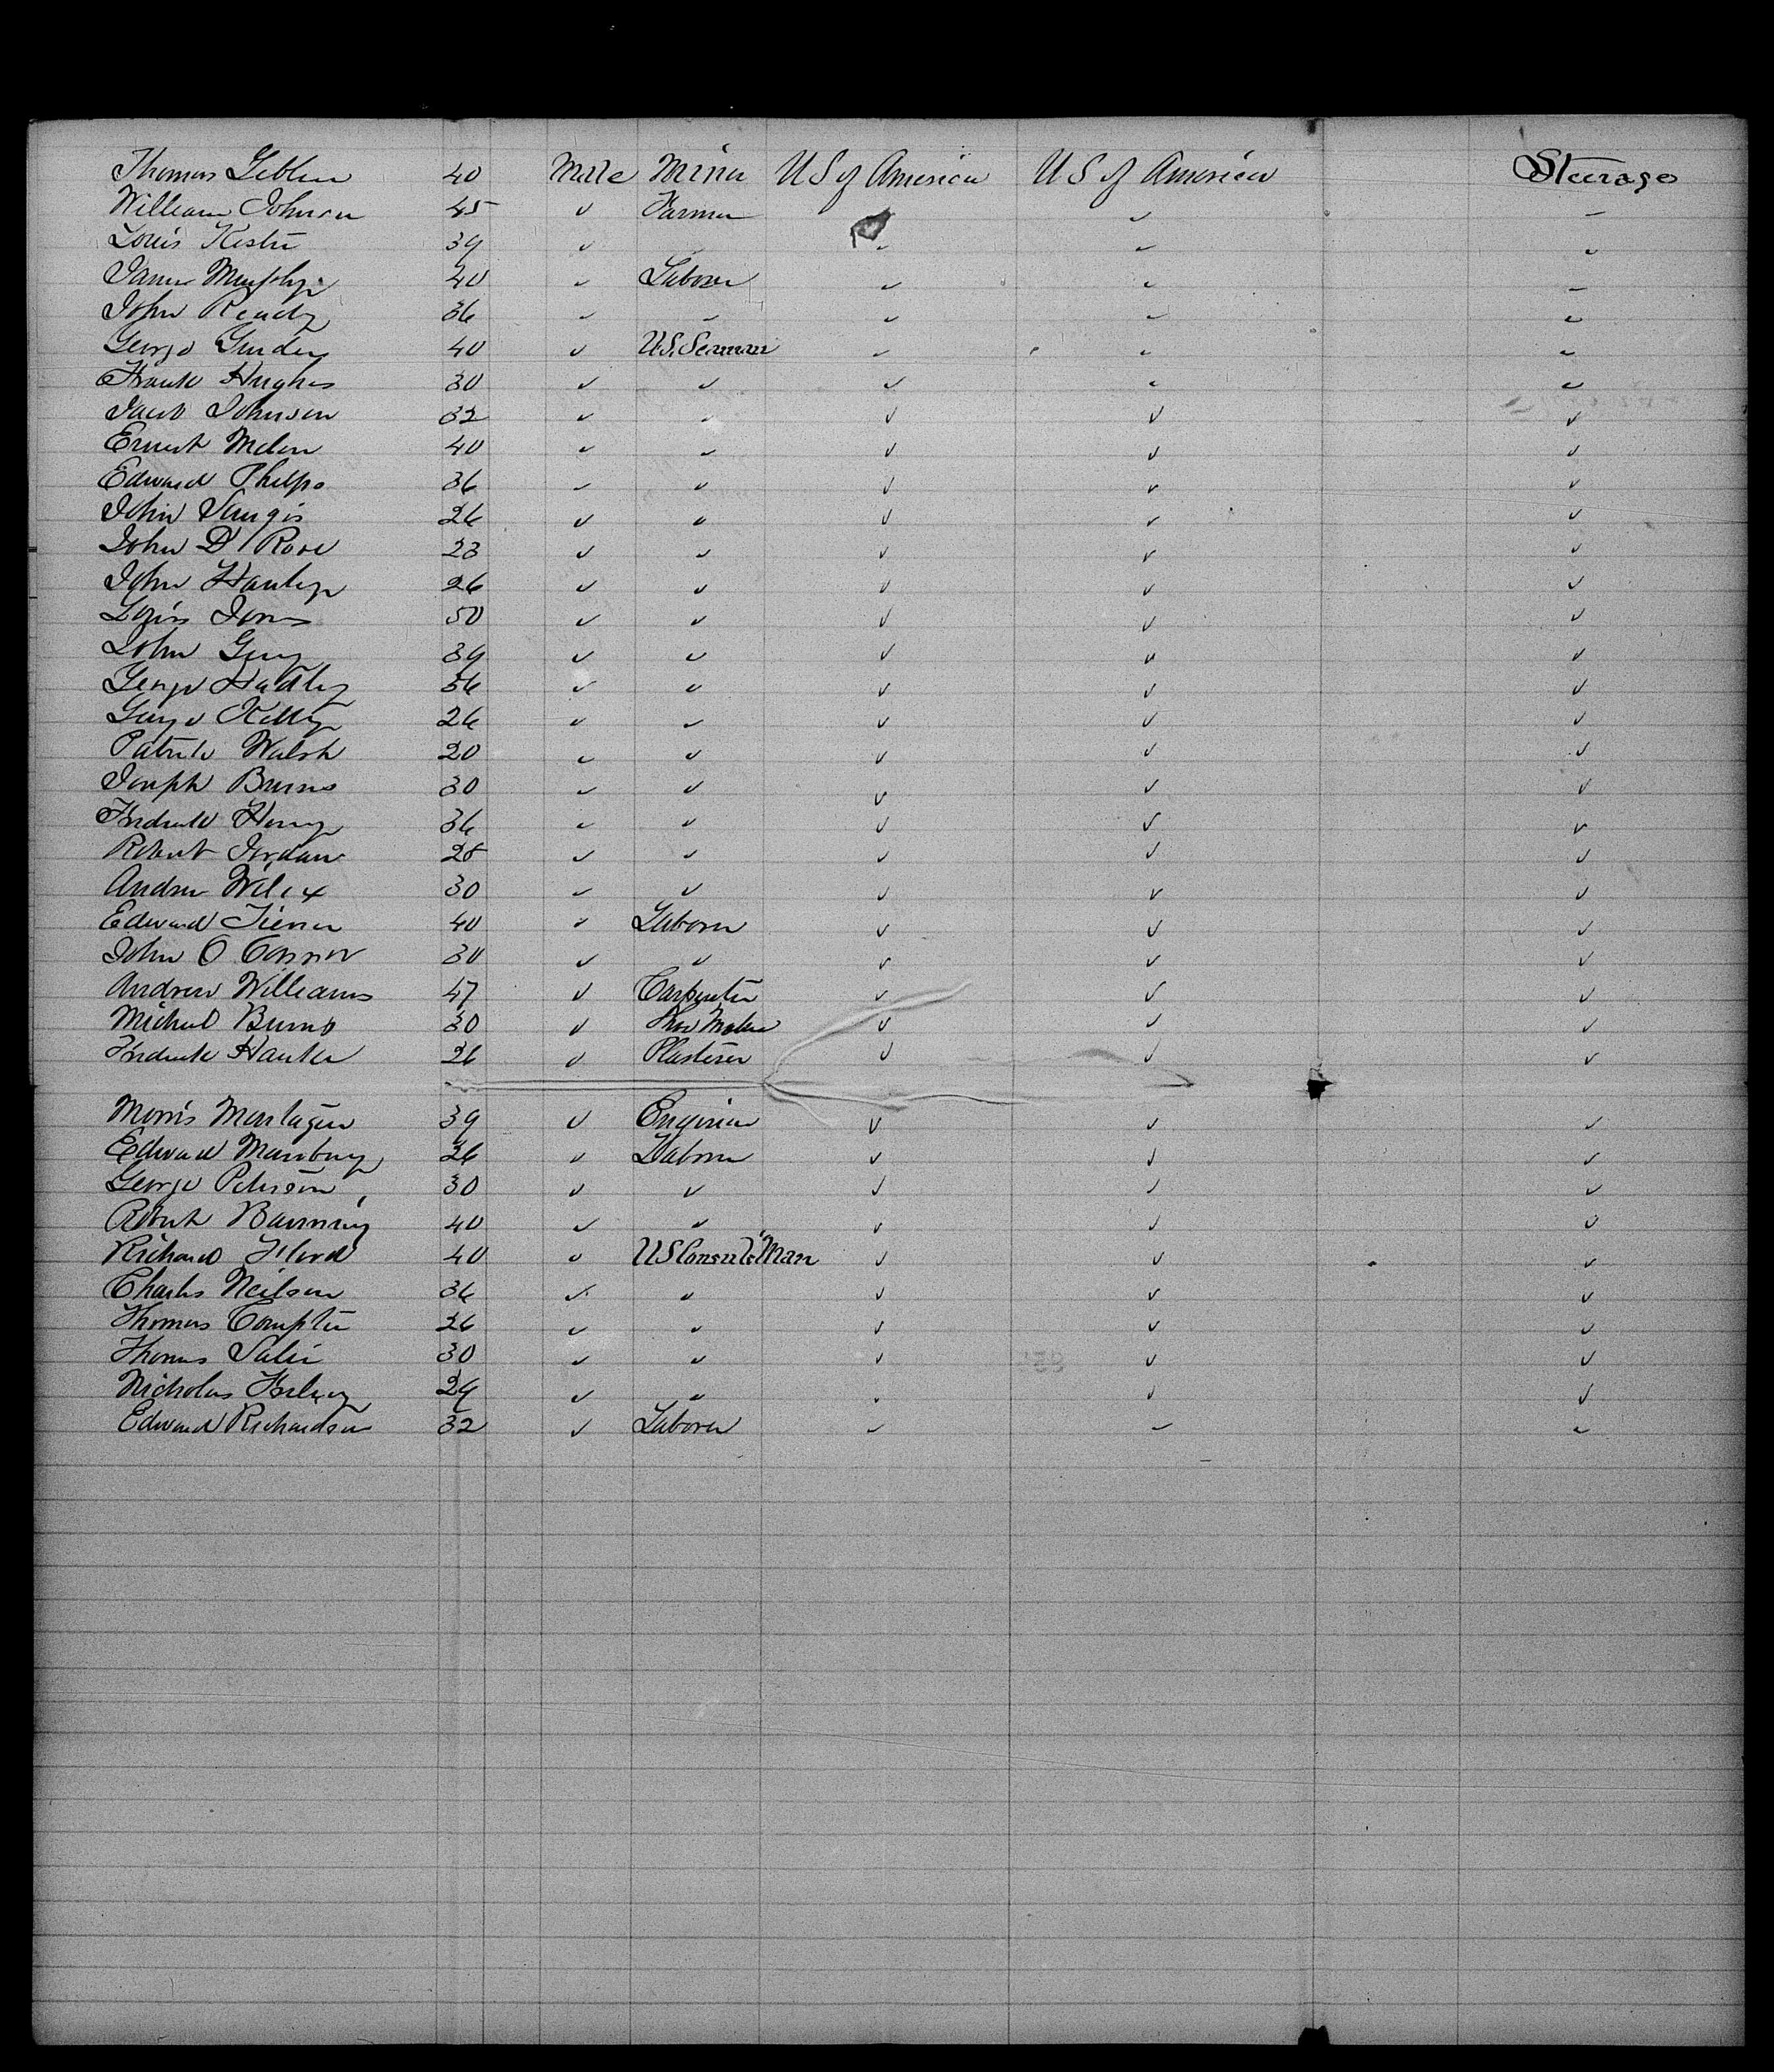 Thomas 40 Male Miner US of America US of America Steerage
William Johnson 45 ✓ Farmer ✓ –
Louis Kester 39 ✓ ✓ ✓ ✓ ✓
James Murphy 40 ✓ Laborer ✓ ✓ –
John Ready 36 ✓ ✓ ✓ ✓ ✓
George 40 ✓ U.S. Seaman ✓ ✓ ✓
Frank Hughes 30 ✓ ✓ ✓ ✓ ✓
Jacob Johnson 32 ✓ ✓ ✓ ✓ ✓
Ernest 40 ✓ ✓ ✓ ✓ ✓
Edward Phelps 36 ✓ ✓ ✓ ✓ ✓
John 26 ✓ ✓ ✓ ✓ ✓
John D Rose 23 ✓ ✓ ✓ ✓ ✓
John Hanley 26 ✓ ✓ ✓ ✓ ✓
Louis Jones 50 ✓ ✓ ✓ ✓ ✓
John 39 ✓ ✓ ✓ ✓ ✓
George Hadley 36 ✓ ✓ ✓ ✓ ✓
George Kelly 26 ✓ ✓ ✓ ✓ ✓
Patrick Walsh 20 ✓ ✓ ✓ ✓ ✓
Joseph Burns 30 ✓ ✓ ✓ ✓ ✓
Fredrick Henry 36 ✓ ✓ ✓ ✓ ✓
Robert Jordan ✓ ✓ ✓ ✓ ✓
Andrew Wilcox 30 ✓ ✓ ✓ ✓ ✓
Edward 40 ✓ Laborer ✓ ✓ ✓
John O Connor 30 ✓ ✓ ✓ ✓ ✓
Andrew Williams 47 ✓ Carpenter ✓ ✓ ✓
Michael Burns 30 ✓ Shoe Maker ✓ ✓ ✓
Fredrick 26 ✓ Plasterer ✓ ✓ ✓
Morris 39 ✓ Engineer ✓ ✓ ✓
Edward 26 ✓ Laborer ✓ ✓ ✓
George Peterson 30 ✓ ✓ ✓ ✓ ✓
Robert 40 ✓ ✓ ✓ ✓ ✓
Richard 40 ✓ US Consuls Man ✓ ✓ ✓
Charles Neilson 36 ✓ ✓ ✓ ✓ ✓
Thomas 26 ✓ ✓ ✓ ✓ ✓
Thomas 30 ✓ ✓ ✓ ✓ ✓
Nicholas ✓ ✓ ✓ ✓
Edward Richardson 32 ✓ Laborer ✓ ✓ ✓